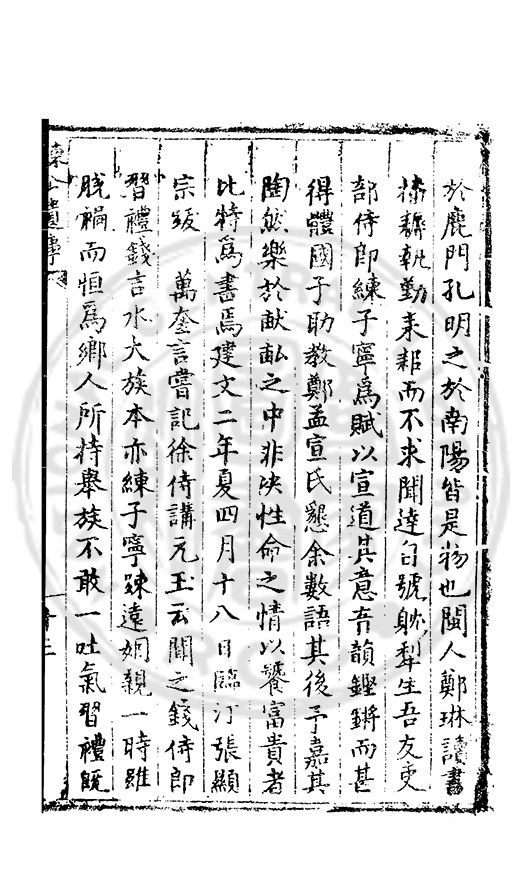 於鹿門孔明之於南陽皆是物也閩人鄭琳讀書
播耨執勤耒耜而不求聞達自號躬犁生吾友吏
部侍郎練子寧為賦以宣道其意音韻鏗鏘而甚
得體國子助教鄭孟宣氏懇余數語其後予嘉其
陶然樂於畎畝之中非決性命之情以饕富貴者
比特為書焉建文二年夏四月十八日臨汀張顯
宗跋　萬奎言嘗記徐侍講元玉云聞之錢侍郎
習禮錢吉水大族本亦練子寧踈遠姻親一時雖
脫禍而恒為鄉人所持舉族不敢一吐氣習禮既
練公遺事